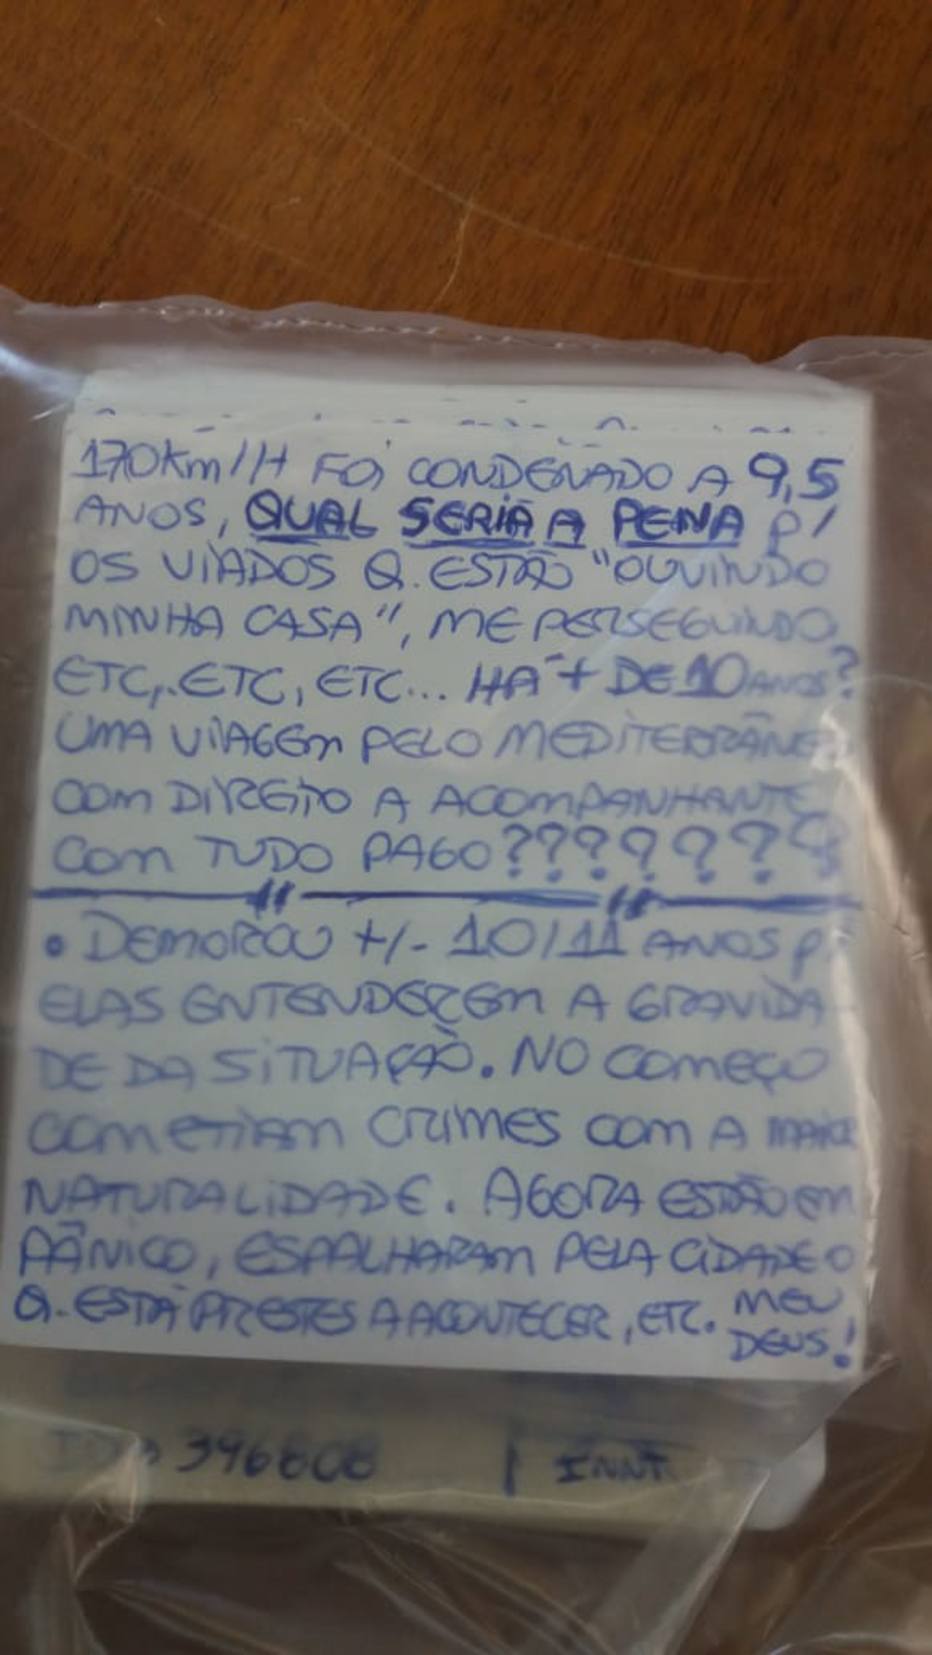 170km/H FOI CONDENADO A 9,5
ANOS, QUAL SERIA A PENA P/
OS VIADOS Q. ESTÃO "OUVINDO
MINHA CASA", ME PERSEGUINDO,
ETC, ETC, ETC... HÁ + DE 10 ANOS?
UMA VIAGEM PELO MEDITERRÂNEO
COM DIREITO A ACOMPANHANTE
COM TUDO PAGO???????
• DEMOROU +/- 10/11 ANOS P/
ELAS ENTENDEREM A GRAVIDA-
DE DA SITUAÇÃO. NO COMEÇO
COMETIAM CRIMES COM A MAIOR
NATURALIDADE. AGORA ESTÃO EM
PÂNICO, ESPALHARAM PELA CIDADE O
Q. ESTÁ PRESTES A ACONTECER, ETC. MEU
DEUS!
396808